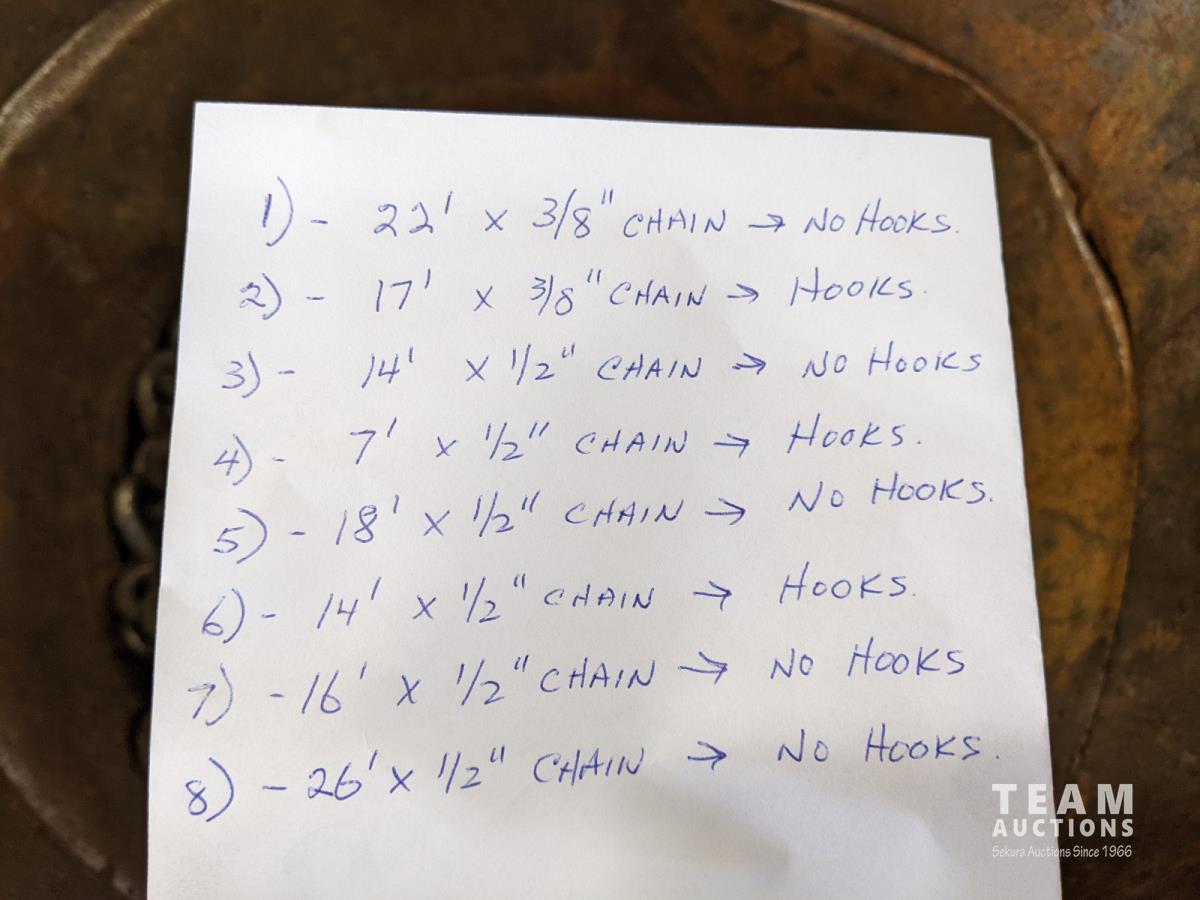 1) - 22' x 3/8" CHAIN → NO HOOKS.
2) - 17' x 3/8" CHAIN → HOOKS.
3) - 14' x 1/2" CHAIN → NO HOOKS
4) - 7' x 1/2" CHAIN → HOOKS.
5) - 18' x 1/2" CHAIN → NO HOOKS.
6) - 14' x 1/2" CHAIN → HOOKS.
7) - 16' x 1/2" CHAIN → NO HOOKS
8) - 26' x 1/2" CHAIN → NO HOOKS.
TEAM
AUCTIONS
Sekura Auctions Since 1966